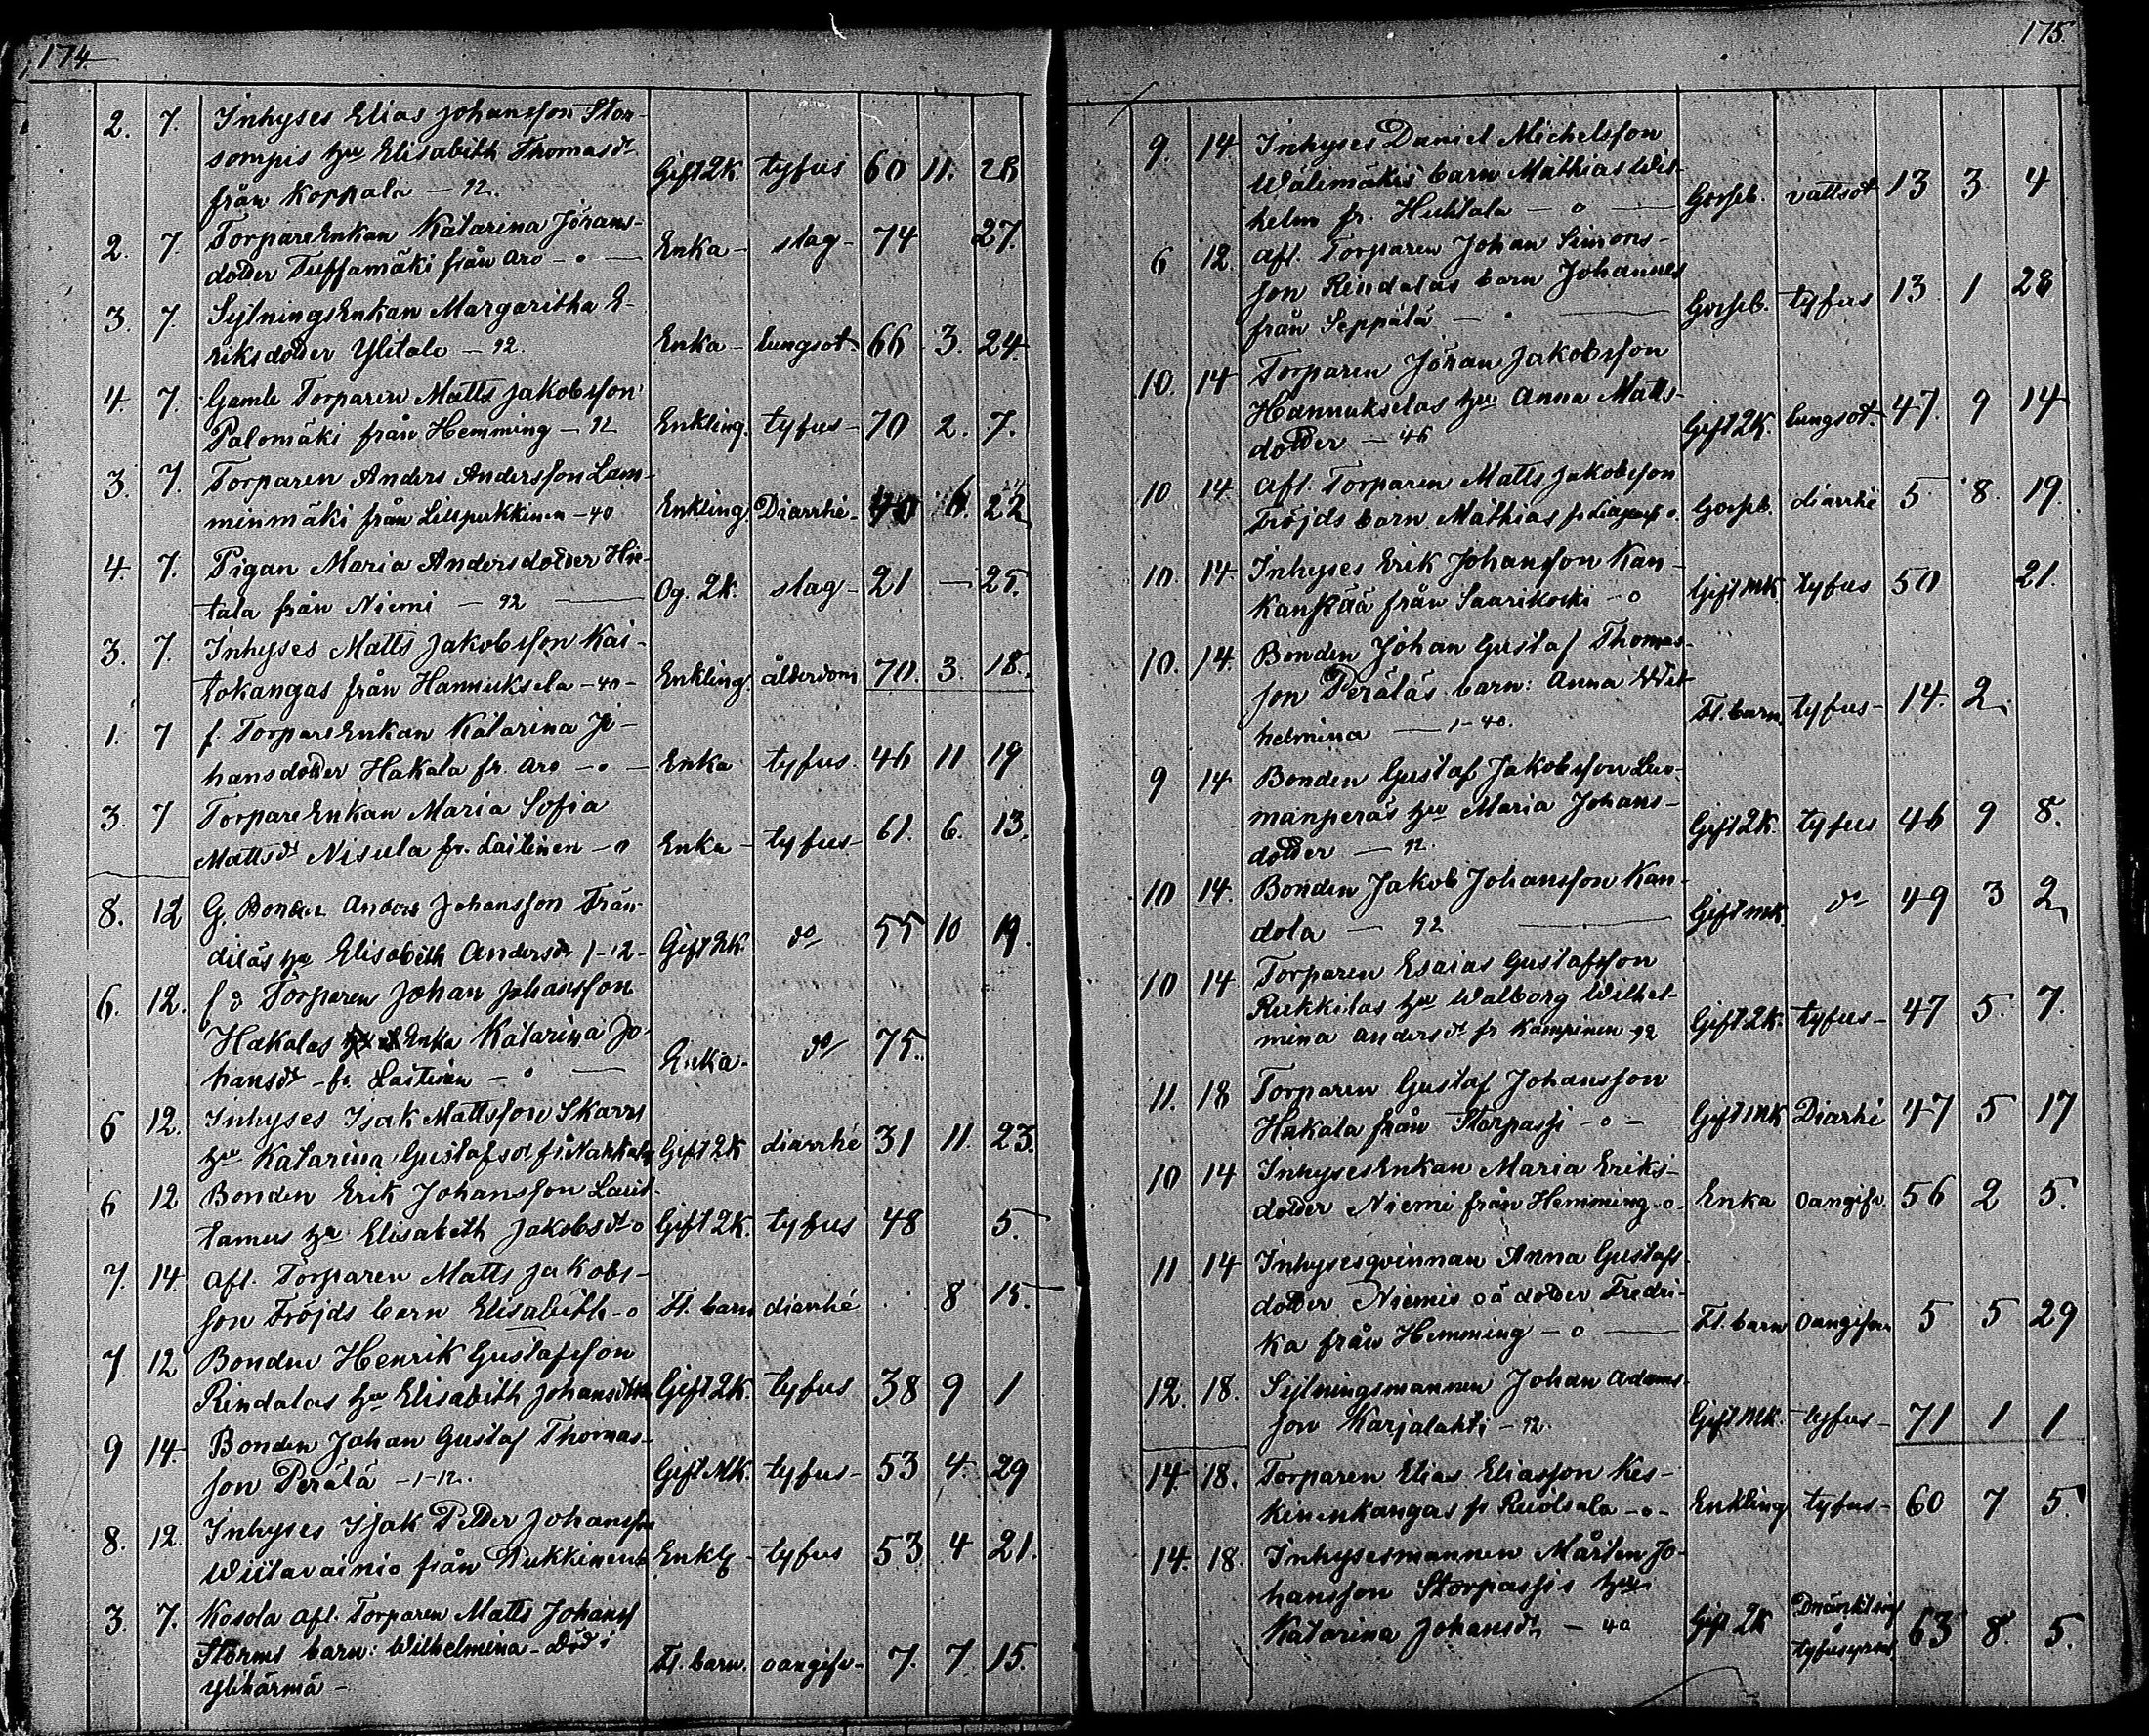 174.
2. 7. Inhyses Elias Johansson Stor-
sompis hu Elisabeth Thomasdr
från Koppala — 92. Gift 2K tyfus 60 11. 28
2. 7. Torpare Enkan Katarina Johans-
dotter Tussamäki från Aro — o — Enka - slag - 74 27.
3. 7. Sytnings Enkan Margaritha E-
riksdotter Ylitalo — 92. Enka - lungsot. 66 3. 24.
4. 7. Gamle Torparen Matts Jakobsson
Palomäki från Hemming — 92 Enkling. tyfus - 70 2. 7.
3. 7. Torparen Anders Andersson Lam-
minmäki från Lillpukkinen - 40 Enkling. Diarrhé - 40 6. 22
4. 7. Pigan Maria Andersdotter Hie-
tala från Niemi — 92 — Og. 2K. slag - 21 — 25.
3. 7. Inhyses Matts Jakobsson Kai-
tokangas från Hannuksela - 40 - Enkling. ålderdom 70. 3. 18.
1. 7 f. Torpare Enkan Katarina Jo-
hansdotter Hakala fr. Aro — o — Enka tyfus. 46 11 19
3. 7 Torpare Enkan Maria Sofia
Mattsdr Nisula fr. Laitinen - o Enka - tyfus - 61. 6. 13.
8. 12 G. Bonden Anders Johansson Frän-
diläs hu Elisabeth Andersdr 1-12- Gift 2K. do 55 10 19.
6. 12. f d Torparen Johan Johansson
Hakalas Enka Katarina Jo-
hansdr - fr. Laitinen - o — Enka. do 75.
6 12. Inhyses Isak Mattsson Skarrs
hu Katarina Gustafsdr Gift 2K diarrhé 31 11. 23.
6 12 Bonden Erik Johansson Lauit-
tamus hu Elisabeth Jakobsdr o Gift 2K. tyfus 48 5.
7. 14. Afl. Torparen Matts Jakobs-
son Fröjds barn Elisabeth - o Fl. barn diarrhé 8 15.
7. 12 Bonden Henrik Gustafsson
Rindalas hu Elisabith Johansdr Gift 2K. tyfus 38 9 1
9 14. Bonden Johan Gustaf Thomas-
son Perälä - 1-12. Gift MK. tyfus - 53 4. 29
8. 12. Inhyses Isak Petter Johansson
Wiitavainio från Pukkinen Enklg - tyfus 53 4 21.
3. 7. Kosola afl. Torparen Matts Johanss
Storms barn: Wilhelmina - död i
Ylihärmä - Fl. barn. oangifv - 7. 7 15.
175.
9. 14. Inhyses Daniel Michelsson
Wälimäkis barn Mathias Wil-
helm fr. Huhtala — o — Gosseb. vattsot 13 3 4
6 12. Afl. Torparen Johan Simons-
son Rindalas barn Johannes
från Seppälä — o — Gosseb. tyfus 13 1 28
10. 14 Torparen Johan Jakobsson
Hannukselas hu Anna Matts-
dotter — 46 Gift 2K. lungsot. 47. 9 14
10 14. Afl. Torparen Matts Jakobsson
Fröjds barn Mathias Gosseb. diarrhé 5 8. 19.
10. 14. Inhyses Erik Johansson Kan-
kanpää från Saarikoski - o Gift MK. tyfus 50 21.
10. 14. Bonden Johan Gustaf Thomas-
son Peräläs barn: Anna Wil-
helmina — 1-40. Fl. barn. tyfus - 14. 2.
9 14 Bonden Gustaf Jakobsson Luo-
manperäs hu Maria Johans-
dotter — 92. Gift 2K. tyfus 46 9 8.
10 14. Bonden Jakob Johansson Kan-
dola — 92 — Gift mk. do 49 3 2
10 14 Torparen Esaias Gustafsson
Rukkilas hu Walborg Wilhel-
mina Andersdr fr Kampinen 92 Gift 2K. tyfus - 47 5. 7.
11. 18 Torparen Gustaf Johansson
Hakala från Storpassi - o - Gift MK Diarhé 47 5 17
10 14 Inhyses Enkan Maria Eriks-
dotter Niemi från Hemming - o - Enka oangifv. 56 2 5.
11 14 Inhysesqvinnan Anna Gustafs-
dotter Niemis oä dotter Fredri-
ka från Hemming — o — Fl. barn oangifven 5 5 29
12. 18. Sytningsmannen Johan Adams-
son Karjalahti - 92. Gift MK. tyfus - 71 1 1
14. 18. Torparen Elias Eliasson Kes-
kinenkangas fr Ruotsala - o - Enkling tyfus - 60 7 5.
14. 18. Inhysesmannen Mårten Jo-
hansson Storpassis hu
Katarina Johansdr — 40 Gift 2K 63 8. 5.